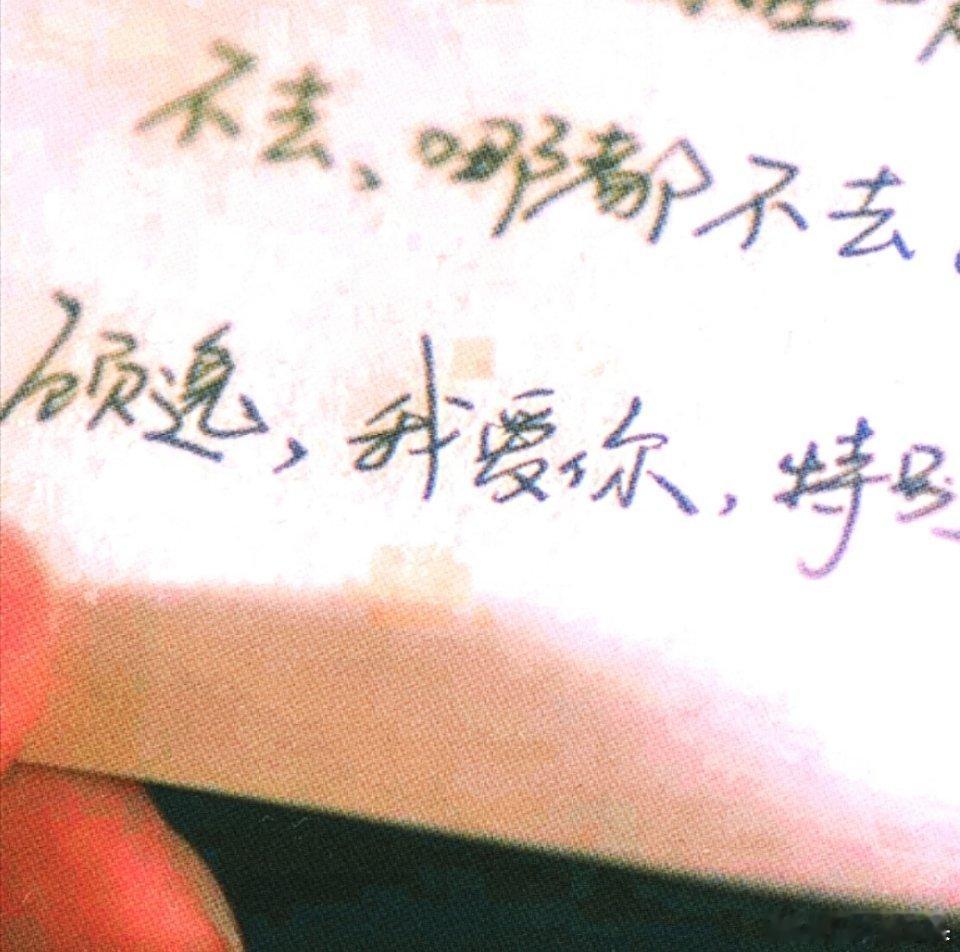 不去、哪都不去。
顾逸，我爱你，特别